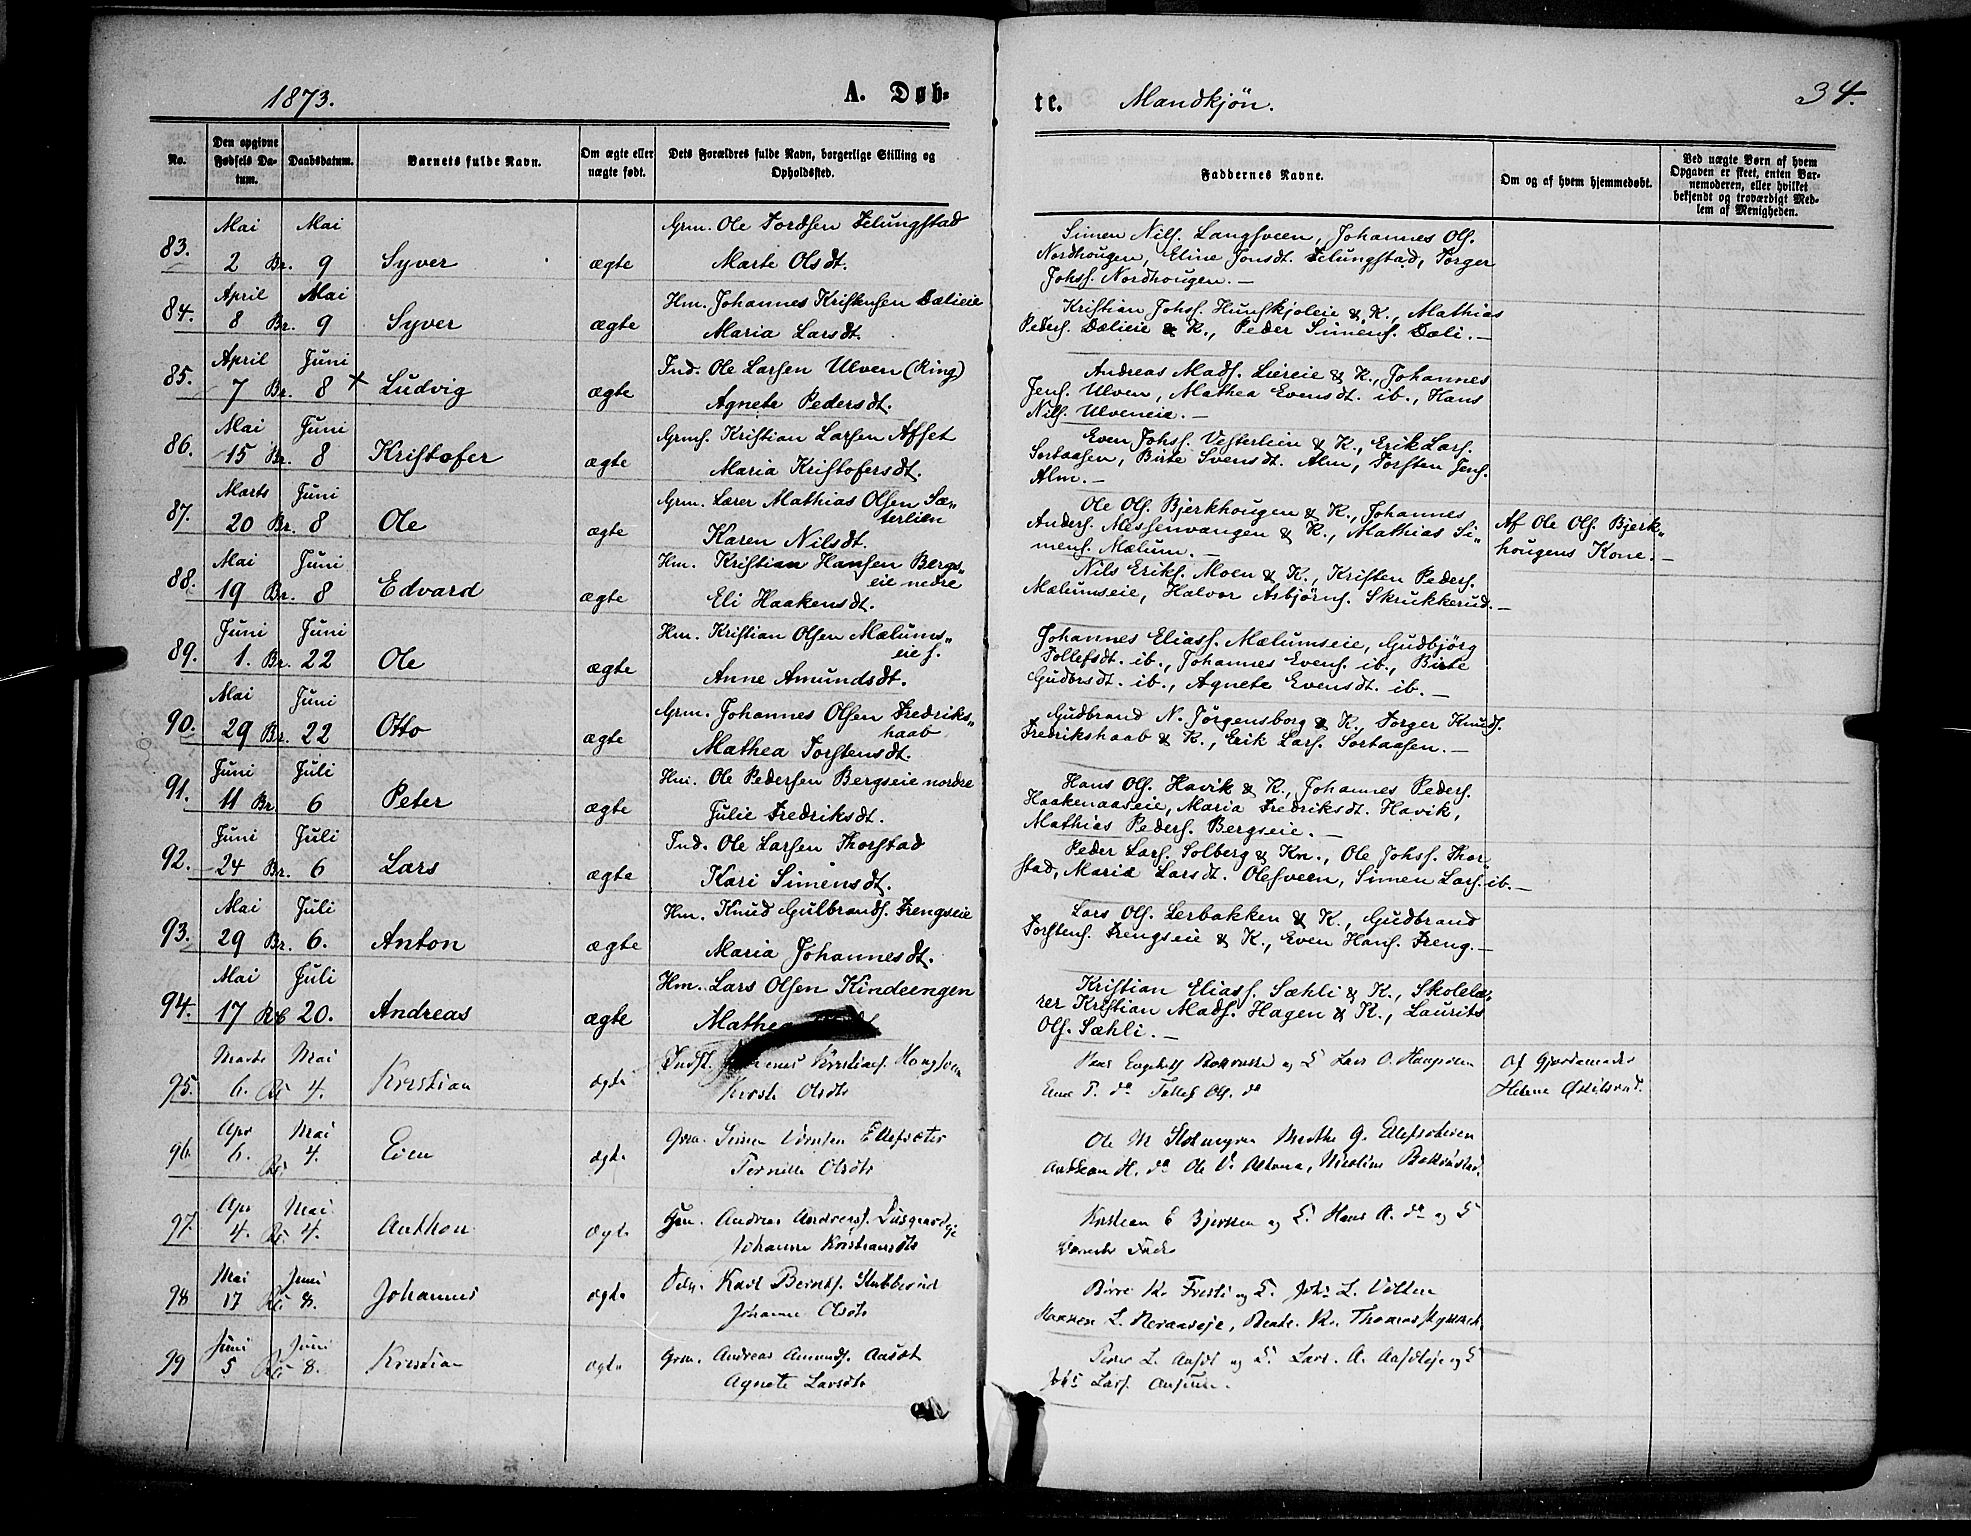 1873. A. Døb- te. Mandkjön. 34.
No. Den opgivne Fødsels Da- tum. Daabsdatum. Barnets fulde Navn. Om ægte eller nægte født. Dets Forældres fulde Navn, borgerlige Stilling og Opholdssted. Faddernes Navne. Om og af hvem hjemmedøbt. Ved uægte Børn af hvem Opgaven er skeet, enten Bar- nemoderen, eller hvilket bekjendt og troværdigt Med- lem af Menigheden.
83. Mai 2 Br. Mai 9 Syver ægte Grm. Ole Tordsen Selungstad
Marte Olsdt.
Simen Nils. Langsveen, Johannes Ols.
Nordhougen, Eline Jonsdt. Selungstad, Torger
Johss. Nordhougen. —
84. April 8 Br. Mai 9 Syver ægte Hm. Johannes Kristensen Dælieie
Maria Larsdt.
Kristian Johss. Hunskjoleie & K., Mathias
Peders. Dælieie & K., Peder Simens. Dæli. —
85. April 7 Br. Juni 8 × Ludvig ægte Ind. Ole Larsen Ulven (Ring)
Agnete Pedersdt.
Andreas Mads. Liereie & K., Johannes
Jens. Ulven, Mathea Evensdt. ib., Hans
Nils. Ulveneie. —
86. Mai 15 Br. Juni 8 Kristofer ægte Grms. Kristian Larsen Afset
Maria Kristofersdt.
Even Johss. Vesterleie & K., Erik Lars.
Sortaasen, Birte Svensdt. Alm, Torsten Jens.
Alm. —
87. Marts 20 Br. Juni 8 Ole ægte Grm. Lærer Mathias Olsen Sæ-
terlien
Karen Nilsdt.
Ole Ols. Bjerkhougen & K., Johannes
Anders. Messenvangen & K., Mathias Si-
mens. Mælum. —
Af Ole Ols. Bjerk-
hougens Kone. —
88. Mai 19 Br. Juni 8 Edvard ægte Hm. Kristian Hansen Bergs-
eie nedre
Eli Haakensdt.
Nils Eriks. Moen & K., Kristen Peders.
Mælumseie, Halvor Asbjörns. Skrukkerud. —
89. Juni 1. Br. Juni 22 Ole ægte Hm. Kristian Olsen Mælums-
eie s.
Anne Amundsdt.
Johannes Eliass. Mælumseie, Gudbjörg
Tollefsdt. ib., Johannes Evens. ib., Birte
Gudbrsdt. ib., Agnete Evensdt. ib. —
90. Mai 29 Br. Juni 22 Otto ægte Grm. Johannes Olsen Fredriks-
haab
Mathea Torstensdt.
Gudbrand N. Jörgensborg & K., Torger Knuds.
Fredrikshaab & K., Erik Lars. Sortaasen. —
91. Juni 11 Br. Juli 6 Peter ægte Hm. Ole Pedersen Bergseie nordre
Julie Fredriksdt.
Hans Ols. Havik & K., Johannes Peders.
Haakenaaseie, Maria Fredriksdt. Havik,
Mathias Peders. Bergseie. —
92. Juni 24 Br. Juli 6 Lars ægte Ind. Ole Larsen Thorstad
Kari Simensdt.
Peder Lars. Solberg & Kn., Ole Johss. Thor-
stad, Maria Larsdt. Olesveen, Simen Lars. ib. —
93. Mai 29 Br. Juli 6. Anton ægte Hm. Knud Gulbrands. Frengseie
Maria Johannesdt.
Lars Ols. Lerbakken & K., Gudbrand
Torstens. Frengseie & K., Even Hans. Freng. —
94. Mai 17 Juli 20. Andreas ægte Hm. Lars Olsen Kindeengen
Mathea
Kristian Eliass. Sæhli & K., Skolelæ-
rer Kristian Mads. Hagen & K., Laurits
Ols. Sæhli. —
95. Marts 6. Mai 4. Kristian ægte Indst. Kristians.
Kirste Olsdtr
og Lars O.
Ols. do
Af Gjordemoder
Helene
96. Apr 6. Mai 4. Even ægte Grm. Simen Ellefsæter
Pernille Olsdtr
Ole M Marthe G.
H. do Ole
97. Apr 4. Mai 4. Anthon ægte Grm. Andreas Andreass.
Johanne Kristiansdtr
Kristian E og Hans A. do og
98 Mai 17 Juni 8. Johannes ægte Karl Bernts. Stubberud
Johanne Olsdtr
Johs L.
L. Thomas
99 Juni 5 Juni 8. Kristian ægte Grm. Andreas Amunds. Aasæt
Agnete Larsdtr
Peder L. og Lars A.
Johs Lars.